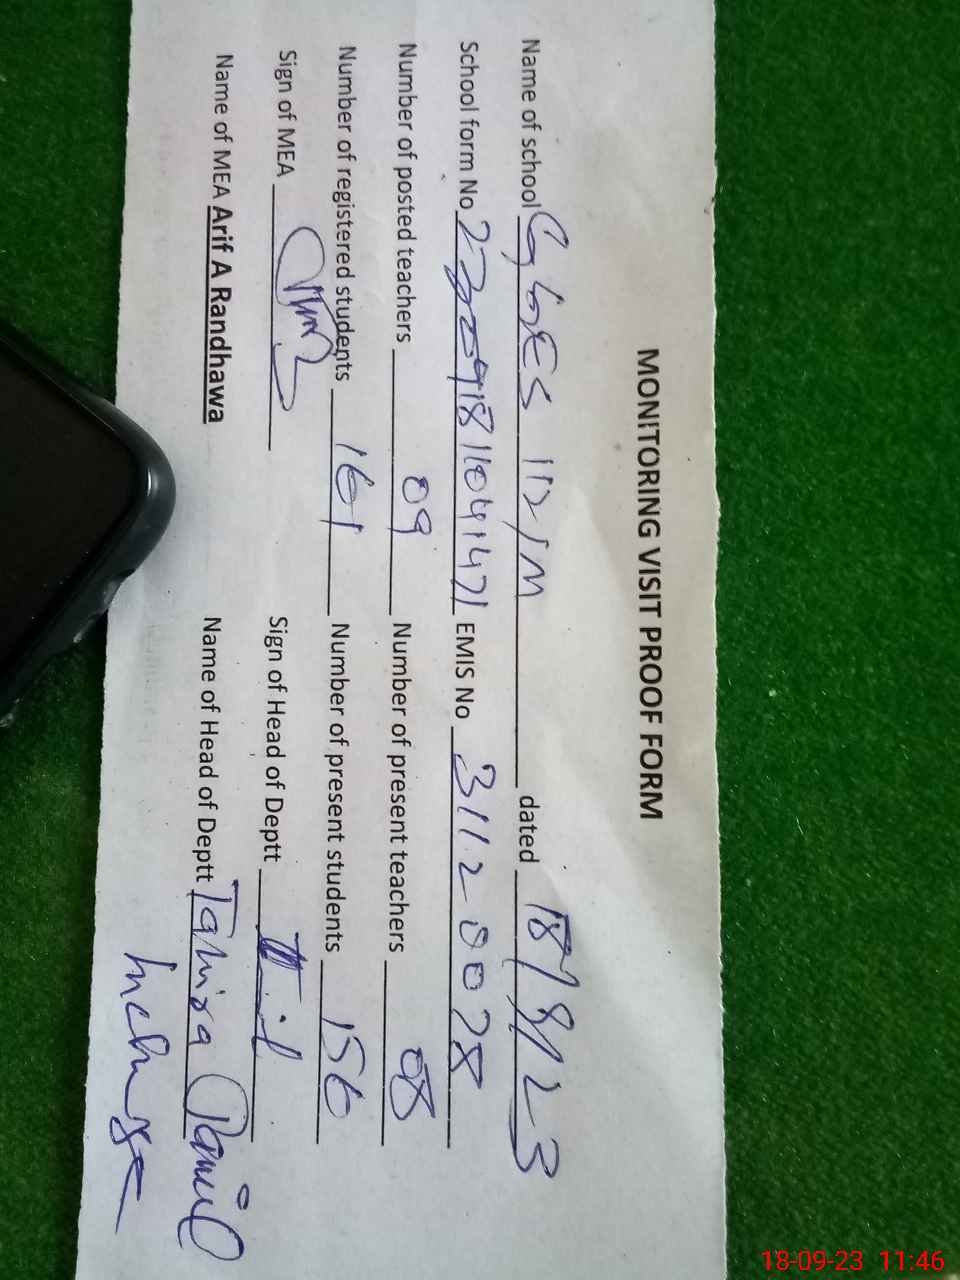 MONITORING VISIT PROOF FORM
Name of school GGES 112/M dated 18/9/23
School form No EMIS No 31120078
Number of posted teachers 09 Number of present teachers 08
Number of registered students 161 Number of present students 156
Sign of MEA Sign of Head of Deptt
Name of MEA Arif A Randhawa Name of Head of Deptt Tahira Jamil
Incharge
18-09-23 11:46